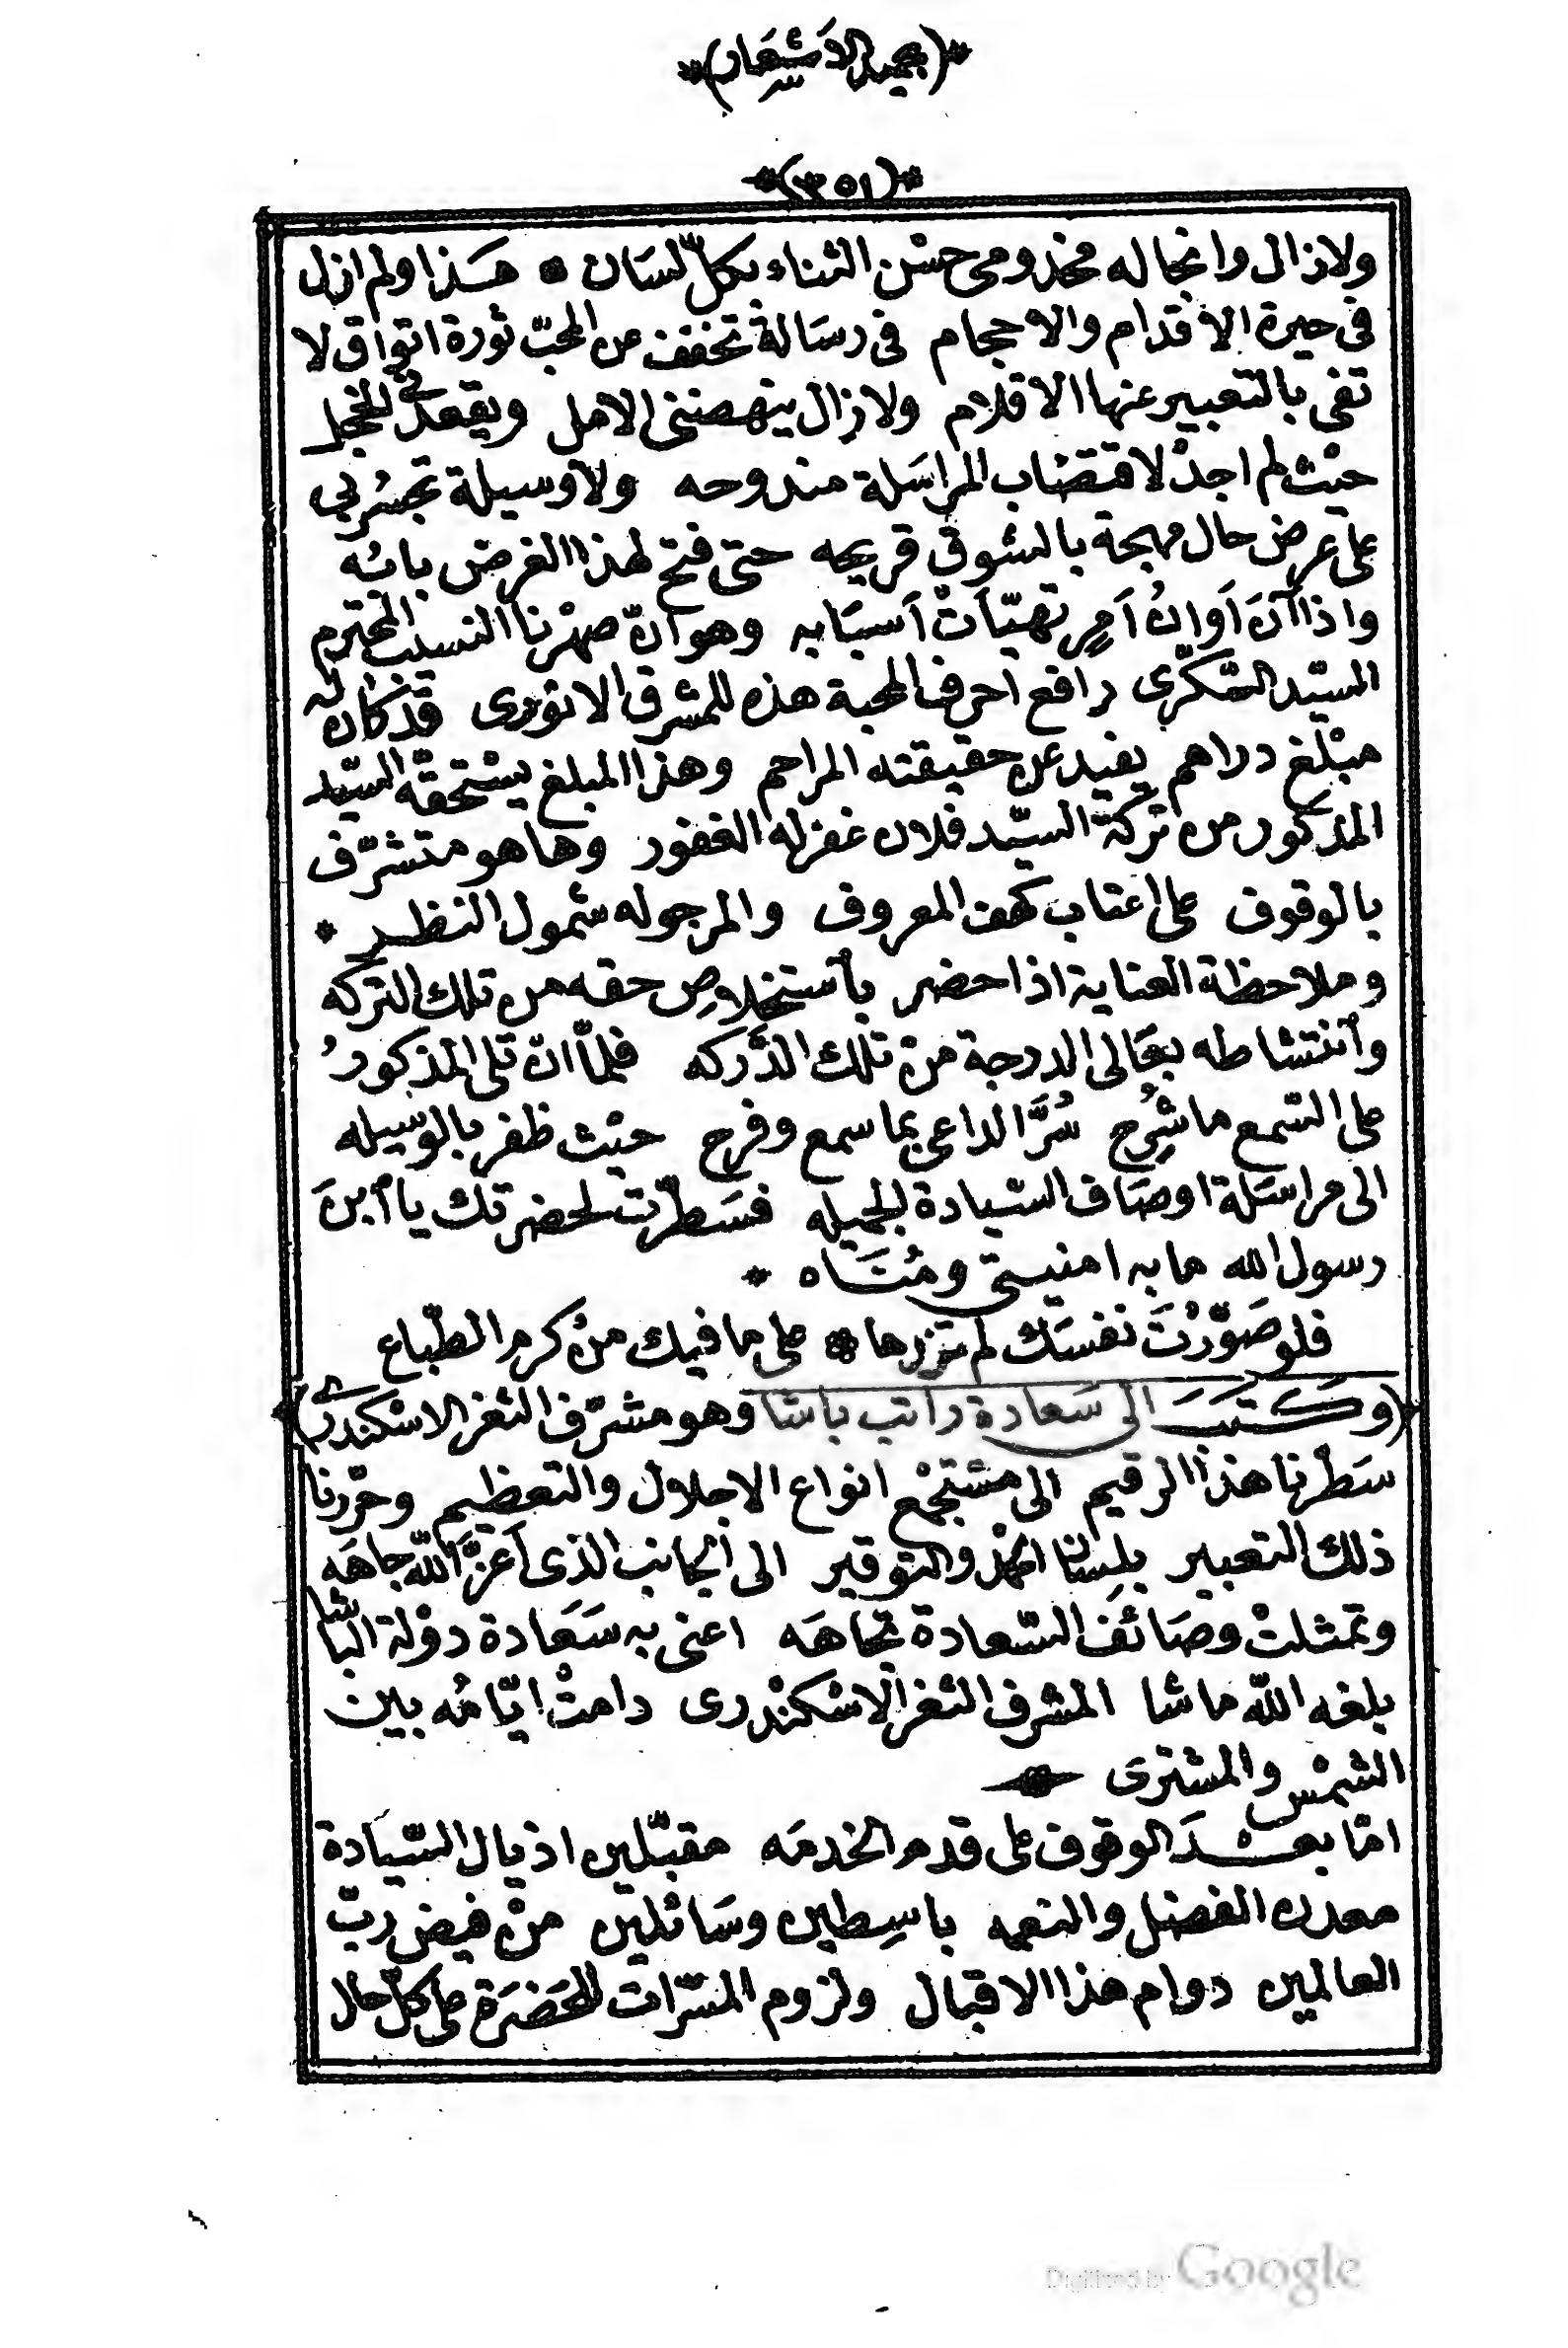 *(بجميد الاشعار)*
*(٣٥١)*
ولازال وانجاله مخدومى حسْن الثناء بكلّ لسَان * هَـذا ولم ازل
فى حيرة الاقدام والاحجام فى رسَالة تخفف عن المحبّ ثورة اتواق لا
تفى بالتعبير عنها الاقلام ولازال ينهضنى الامل ويقعدنى الخجل
حيْث لم اجدْ لاقتضاب المراسَلة مندوحه ولاوسيلة تجسُر بى
على عرض حال مهجة بالشوق قريحه حتى فتح لهذا الغرض بابُه
واذا آنَ اَوانُ اَمرٍ تهيّأتْ اَسبَابه وهو انّ صهْرنا النسيب المحترم
السيّد السّكّرى رافع احرف المحبة هذه للمشرق الانورى قدْ كان له
مبْلغ دراهم يفيد عن حقيقته المراحم وهذا المبلغ يسْتحقّه السّيد
المذكور من تركة السيّد فلان غفر له الغفور وها هو متشرّف
بالوقوف على اعتاب كهف المعروف والمرجو له شمول النظـر *
وملاحظة العناية اذا حضر بأستخلاصِ حقه من تلك التركه
وأنتشاطه بعَالى الدرجة منْ تلك الدَّركه فلمّا انّ تلى المذكورُ
على السّمع ما شُرِح سُرَّ الداعى بما سمع وفرح حيْث ظفر بالوسيله
الى مراسَلة اوصَاف السّيادة الجميله فسَطرّت لحضرتك يا أبنَ
رسول الله ما به امنيتى ومُنَـاه *
فلو صَوّرْتَ نفسَك لم تزدها * على ما فيك منْ كرم الطّباع
(وكـتبَ الى سَعادة راتب باشا وهو مشرّف الثغر الاسْكندرى)
سَطرْنا هذا الرقيم الى مسْتجْمع انواع الاجلال والتعظيم وحرّرنا
ذلك التعبير بلِسان الحمْد والتوقير الى الجانب الذى أعزَّ اللّه جاهَه
وتمثلتْ وصَائف السّعادة تجاهَه اعنى به سَعَادة دوْلة الباشا
بلغه اللّه ماشا المشرف الثغر الاسْكنْدرى دامتْ ايّامُه بين
الشمْس والمشترى
امّا بعـدَ الوقوف على قدم الخدمَه مقبّلين اذيال السّيادة
معدن الفضل والنعمه باسِطين وسَائلين منْ فيض ربّ
العالمين دوام هذا الاقبال ولزوم المسَرّات للحَضرَة على كلّ حال
Digitized by Google